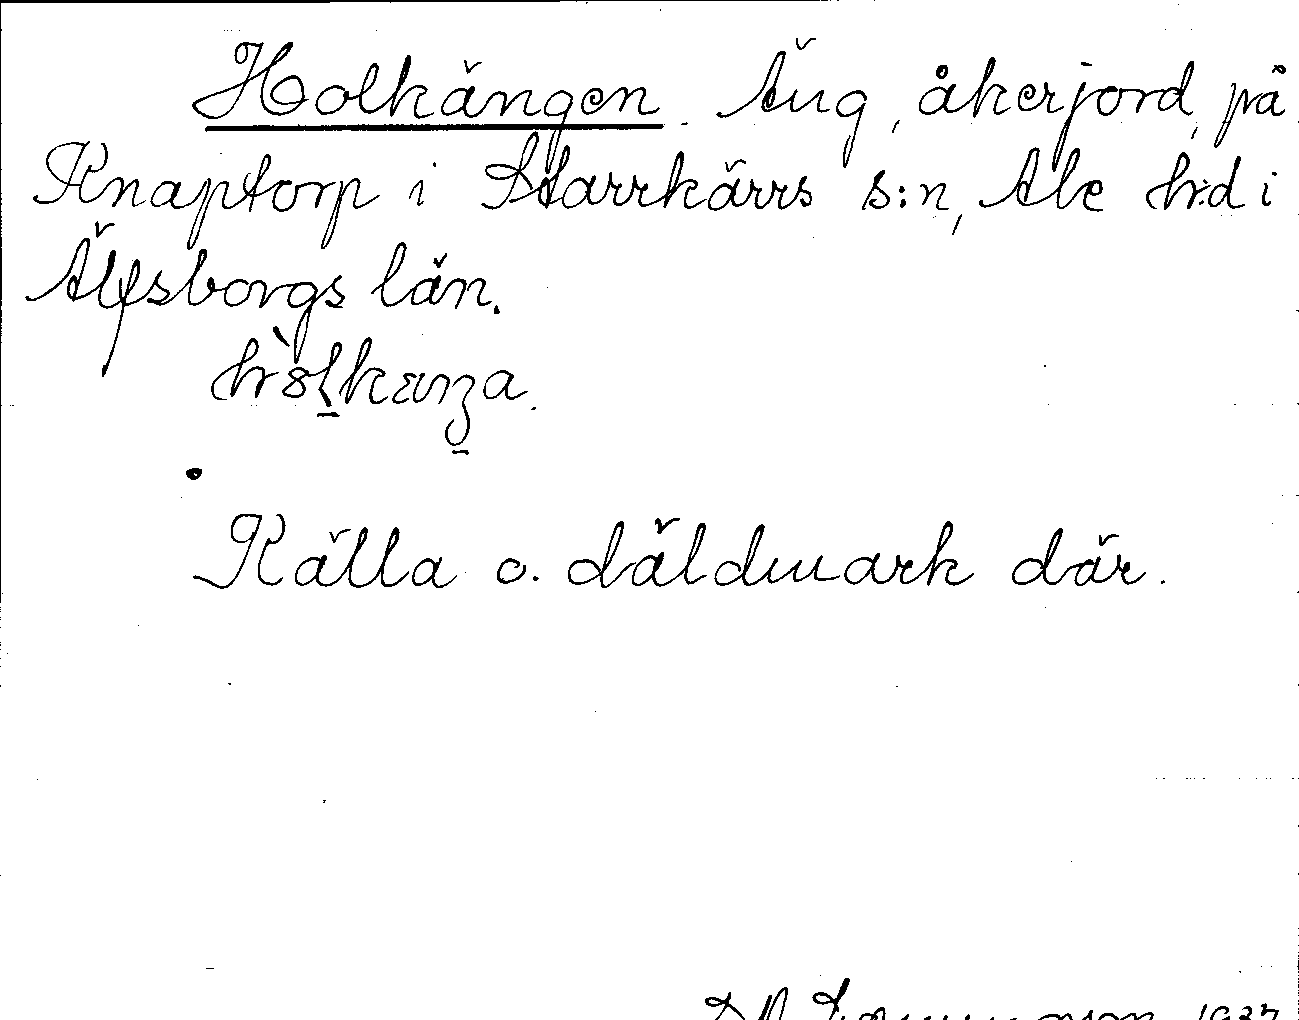 Holkängen. Äng, åkerjord, på
Knaptorp i Starrkärrs s:n, Ale h:d i
Älfsborgs län.
Källa o. däldmark där.
1937